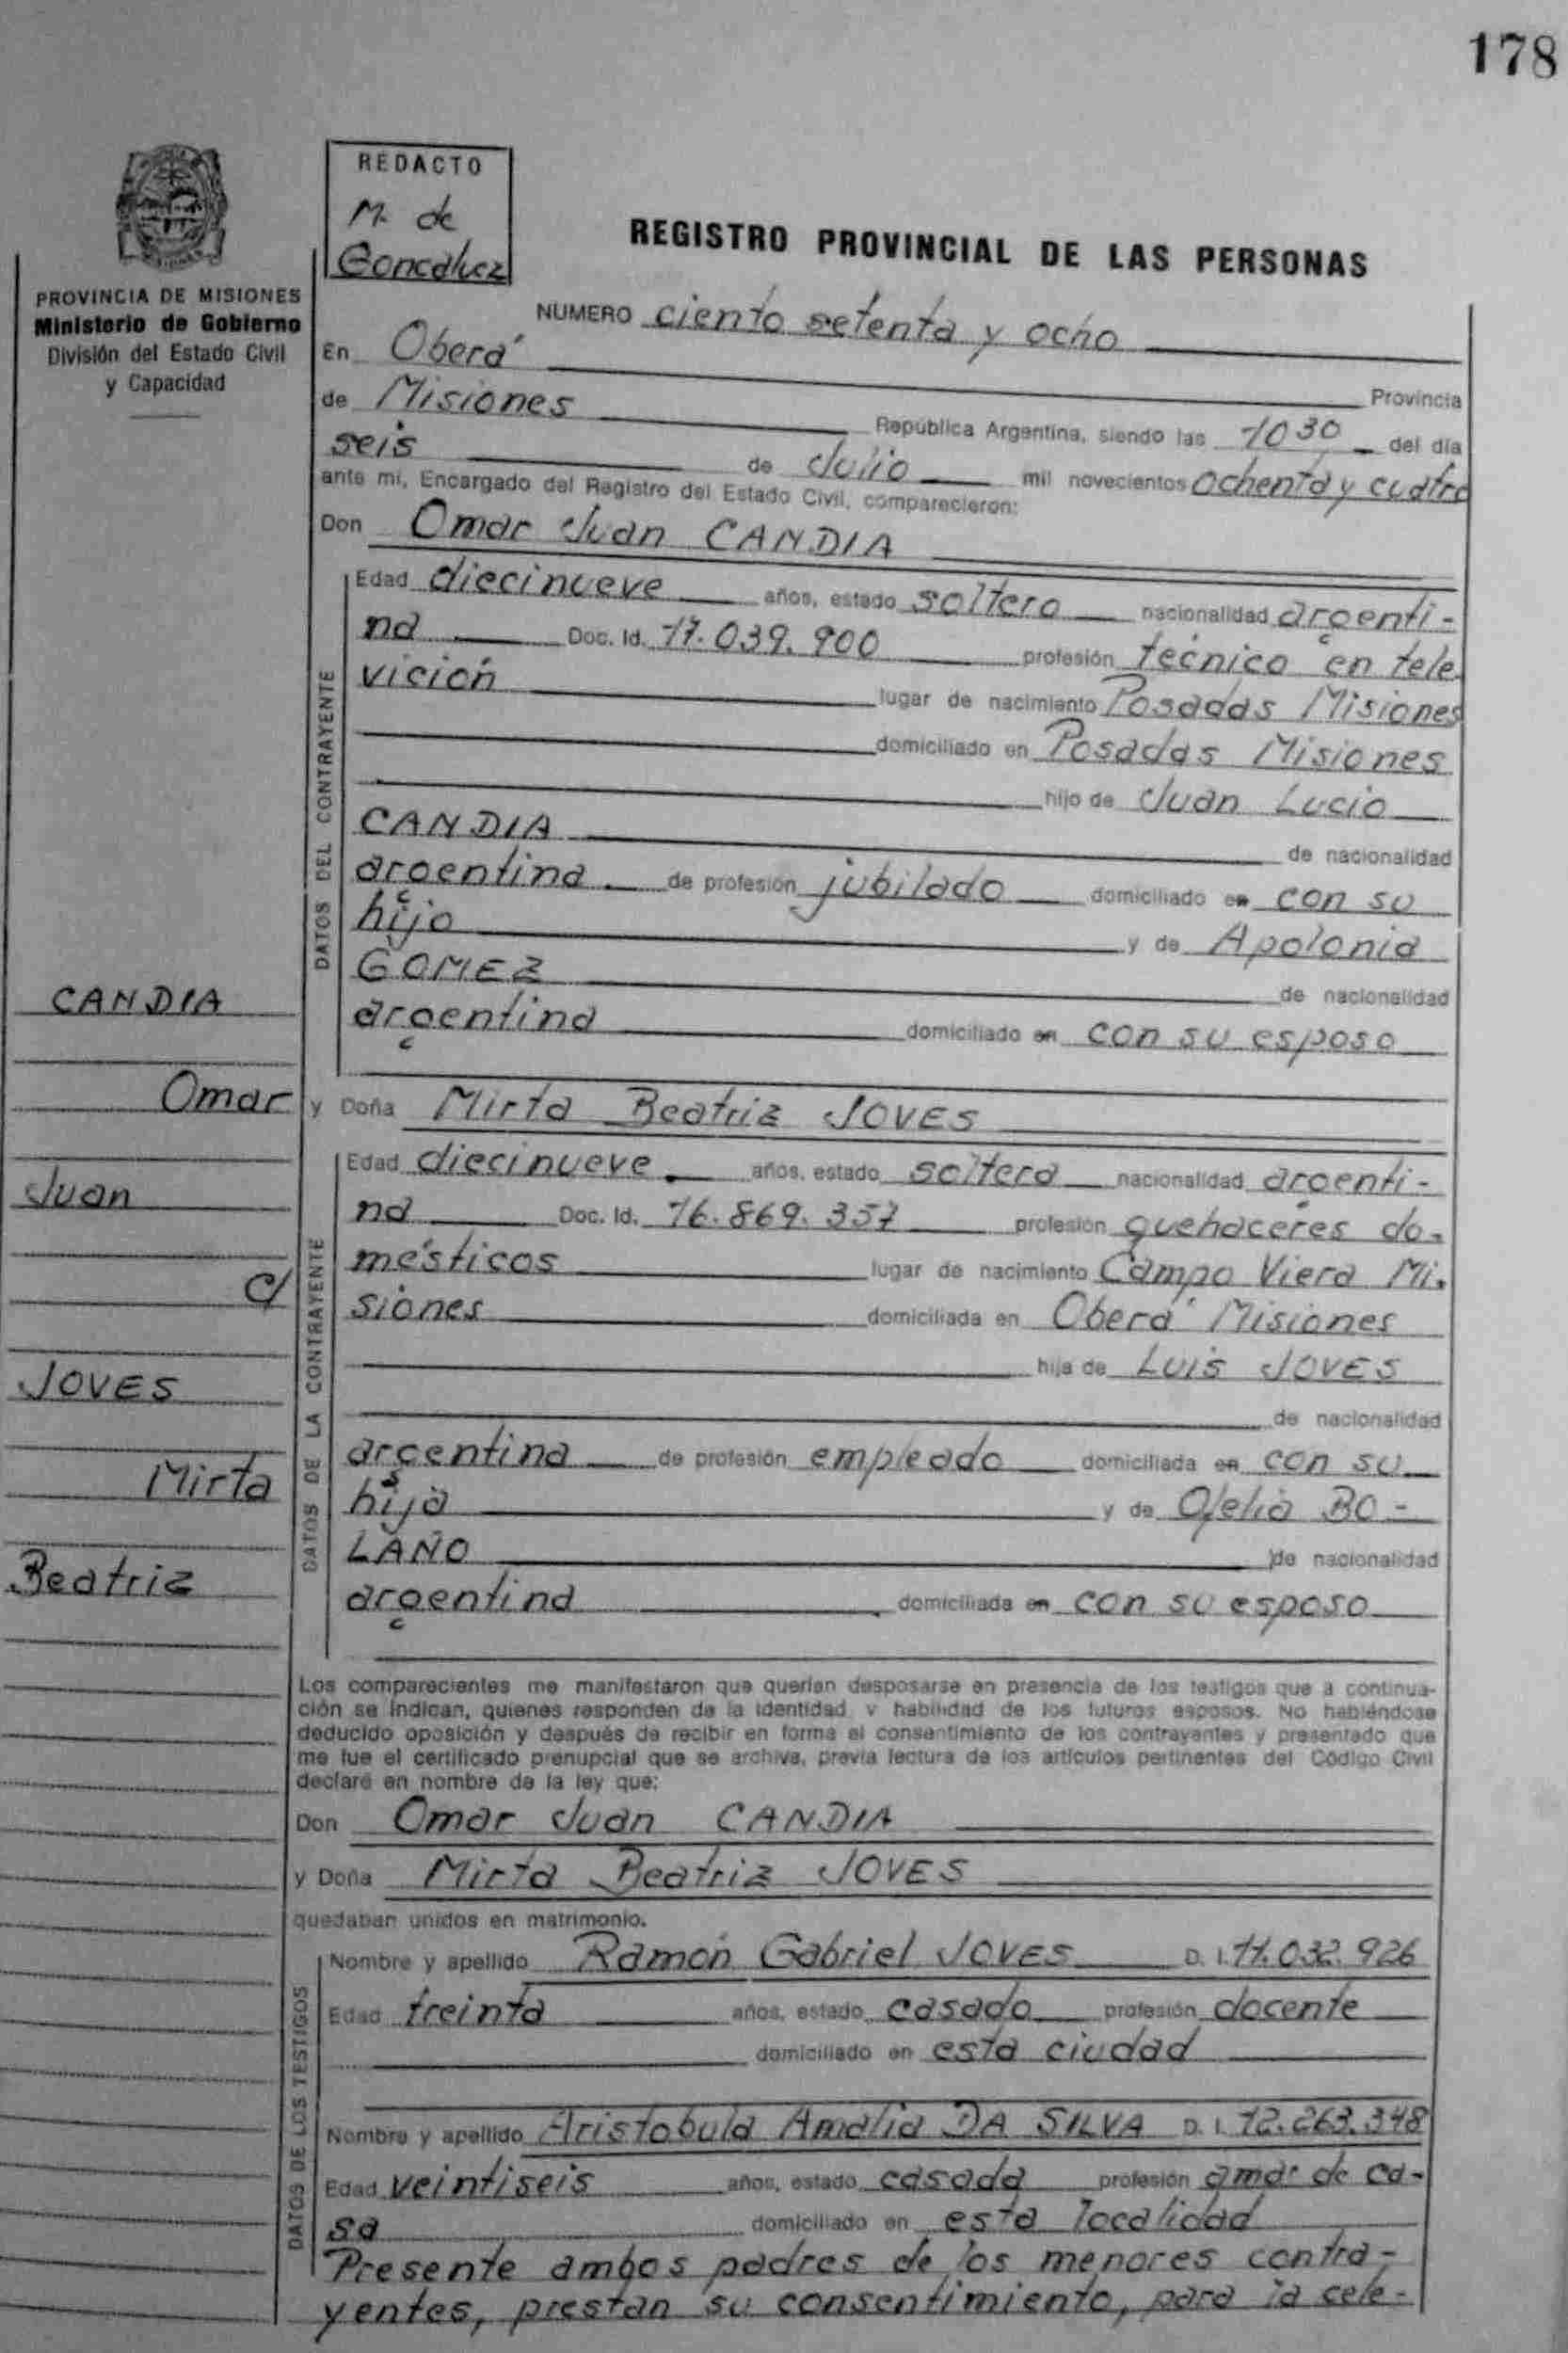 178
REDACTO
M. de
Goncalvez
REGISTRO PROVINCIAL DE LAS PERSONAS
PROVINCIA DE MISIONES
Ministerio de Gobierno
División del Estado Civil
y Capacidad
NUMERO ciento setenta y ocho
En Oberá Provincia
de Misiones República Argentina, siendo las 1030 del día
seis de Julio mil novecientos ochenta y cuatro
ante mí, Encargado del Registro del Estado Civil, comparecieron:
Don Omar Juan CANDIA
DATOS DEL CONTRAYENTE
Edad diecinueve años, estado soltero nacionalidad argenti-
na Doc. Id. 17.039.900 profesión técnico en tele
vición lugar de nacimiento Posadas Misiones
domiciliado en Posadas Misiones
hijo de Juan Lucio
CANDIA de nacionalidad
argentina de profesión jubilado domiciliado en con su
hijo y de Apolonia
GOMEZ de nacionalidad
argentina domiciliado en con su esposo
y Doña Mirta Beatriz JOVES
DATOS DE LA CONTRAYENTE
Edad diecinueve años, estado soltera nacionalidad argenti-
na Doc. Id. 16.869.357 profesión quehaceres do-
mésticos lugar de nacimiento Campo Viera Mi-
siones domiciliada en Oberá Misiones
hija de Luis JOVES
de nacionalidad
argentina de profesión empleado domiciliada en con su
hija y de Ofelia BO-
LAÑO de nacionalidad
argentina domiciliada en con su esposo
CANDIA
Omar
Juan
c/
JOVES
Mirta
Beatriz
Los comparecientes me manifestaron que querían desposarse en presencia de los testigos que a continua-
ción se indican, quienes responden de la identidad y habilidad de los futuros esposos. No habiéndose
deducido oposición y después de recibir en forma el consentimiento de los contrayentes y presentado que
me fue el certificado prenupcial que se archiva, previa lectura de los artículos pertinentes del Código Civil
declaré en nombre de la ley que:
Don Omar Juan CANDIA
y Doña Mirta Beatriz JOVES
quedaban unidos en matrimonio.
DATOS DE LOS TESTIGOS
Nombre y apellido Ramón Gabriel JOVES D. I. 11.032.926
Edad treinta años, estado casado profesión docente
domiciliado en esta ciudad
Nombre y apellido Aristobula Amalia DA SILVA D. I. 12.263.348
Edad veintiseis años, estado casada profesión ama de ca-
sa domiciliado en esta localidad
Presente ambos padres de los menores contra-
yentes, prestan su consentimiento, para la cele-